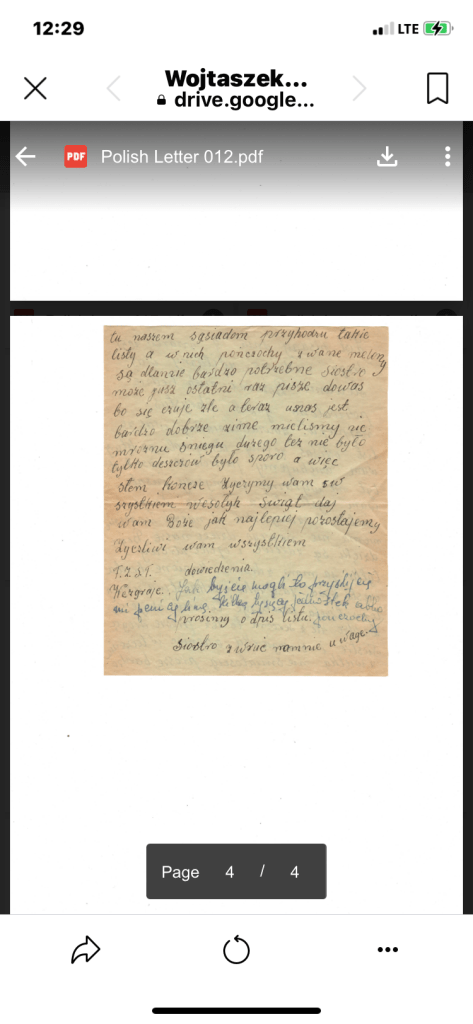 12:29
LTE
Wojtaszek...
drive.google...
PDF Polish Letter 012.pdf
tu naszem sąsiadom przyhodzu takie
listy a w nich pończochy zwane
są dlanzie bardzo potrzebne Siostro
może jusz ostatni raz pisze dowas
bo się czuje zle a teraz unas jest
bardzo dobrze zime mielismy nie
mroznu sniegu dużego tez nie było
tylko deszczów było sporo a więc
stem koncze życzymy wam
wesołyh Swiąt daj
wam Boże jak najlepiej pozostajemy
życzliwi wam wszystkiem
dowiedzenia.
Jak byście mogli to przyslijcie
mi
prosimy o dpis listu. ponczochy
Siostro zwruć namnie uwage.
Page 4 / 4